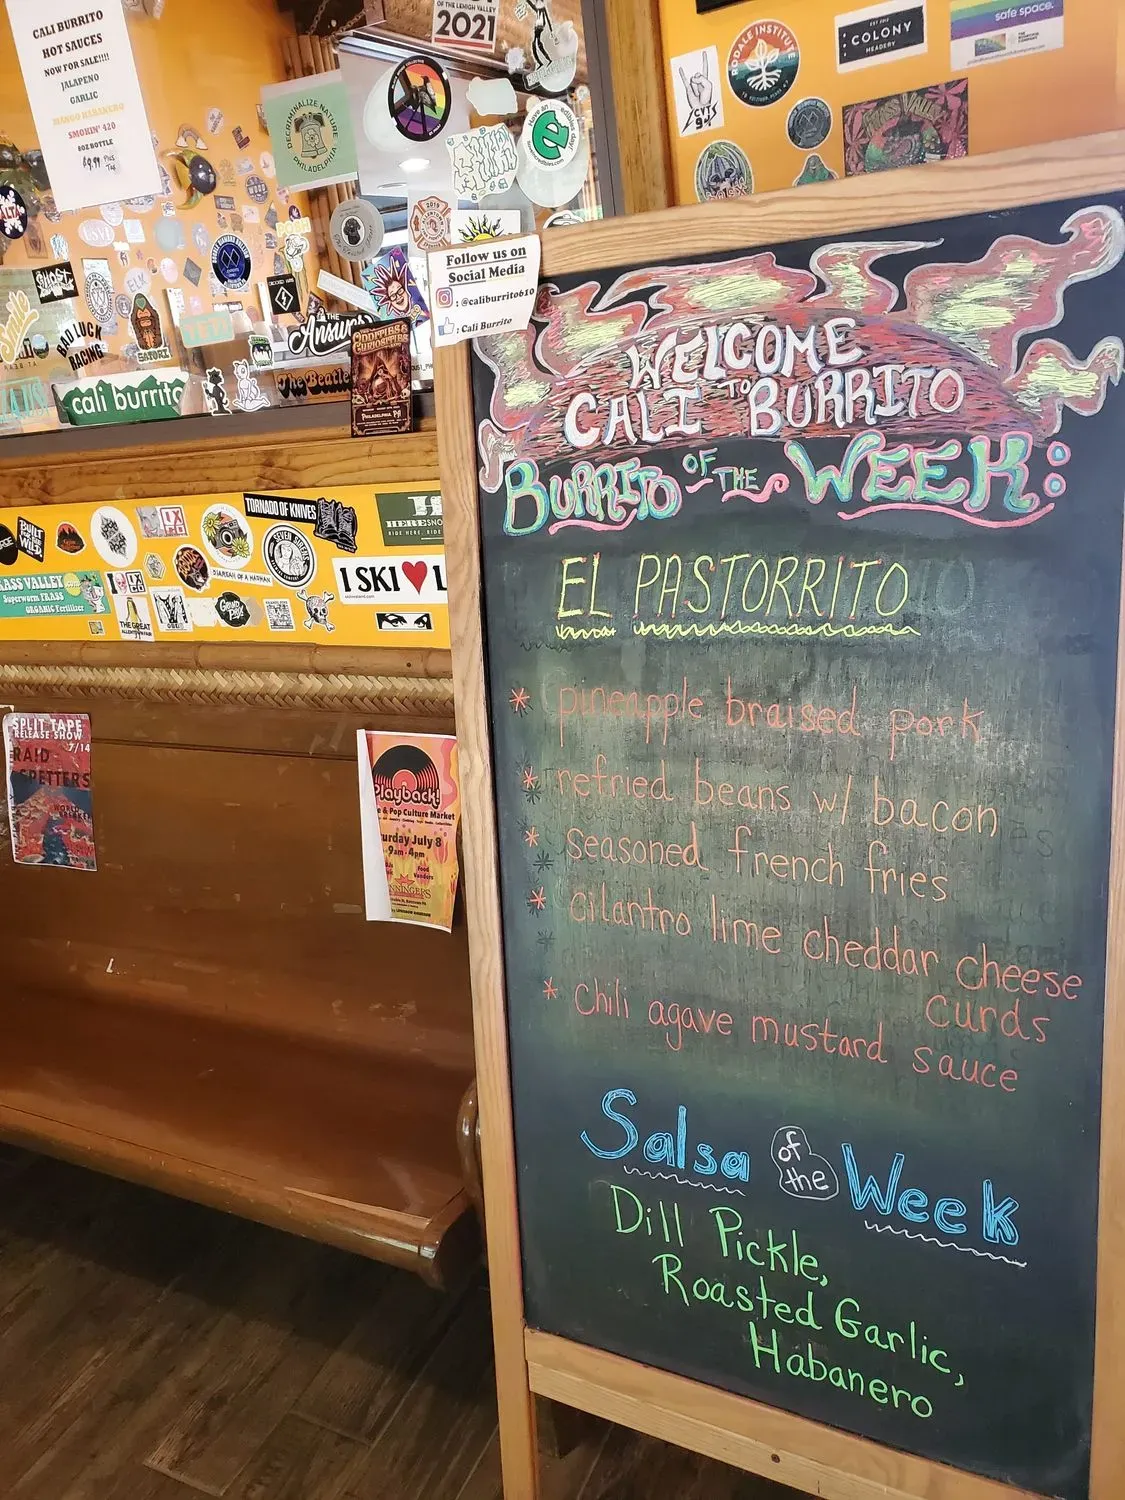 CALI BURRITO
HOT SAUCES
NOW FOR SALE!!!!
JALAPENO
GARLIC
MANGO HABANERO
SMOKIN' 420
8OZ BOTTLE
$9.99 Plus
Tax
OF THE LEHIGH VALLEY
2021
DECRIMINALIZE NATURE
PHILADELPHIA
Have an incredibles day!
2019
Follow us on
Social Media
: @caliburrito610
: Cali Burrito
RODALE INSTITUTE
COLONY
MEADERY
safe space.
GRASS VALLEY
GHOST
BAD LUCK
RACING
SATORI
YETI
Smile
cali burrito
THE
Answer
The Beatles
ODDITIES &
CURIOSITIES
PHILADELPHIA PA
BUILT
WILD
TORNADO OF KNIVES
SEVEN SIRENS
DIARRHEA OF A MADMAN
HERE
RIDE HERE. RIDE
I SKI L
GRASS VALLEY
Superworm FRASS
ORGANIC Fertilizer
THE GREAT
ALLENTOWN FAIR
SPLIT TAPE
RELEASE SHOW
7/14
RAID
SPETTERS
WORLD
BREAKER
Playback!
& Pop Culture Market
urday July 8
9am - 4pm
Food
Vendors
WELCOME
TO
CALI BURRITO
BURRITO OF THE WEEK:
EL PASTORRITO
* pineapple braised pork
* refried beans w/ bacon
* seasoned french fries
* cilantro lime cheddar cheese
curds
* chili agave mustard sauce
Salsa of the Week
Dill Pickle,
Roasted Garlic,
Habanero